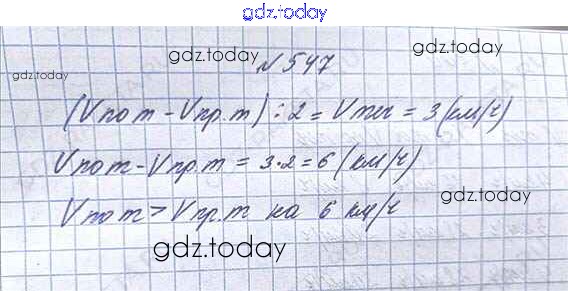 gdz.today
gdz.today
gdz.today
gdz.today
№ 547
(Vпо т - Vпр.т) : 2 = Vтеч = 3 (км/ч)
Vпо т - Vпр.т = 3·2 = 6 (км/ч)
gdz.today
Vпо т > Vпр.т на 6 км/ч
gdz.today